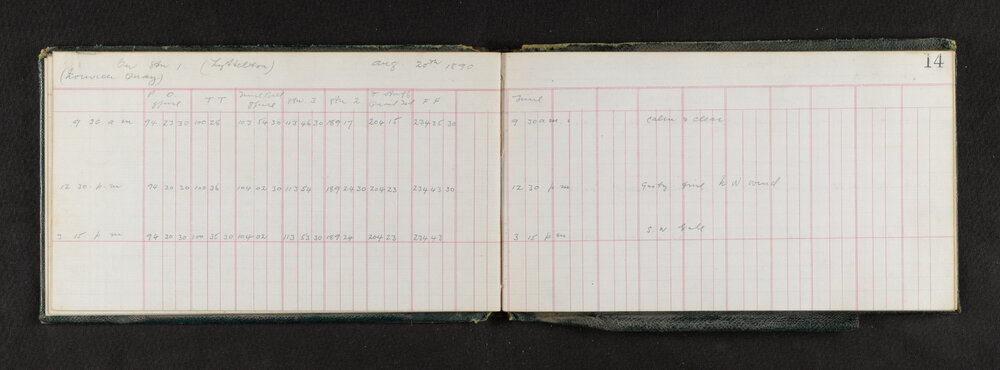 14
On Stn 1 (Lyttelton) Aug 20th 1890
(Norwich Quay)
P O Spire T T Time Ball Spire Stn 3 Stn 2 F F Time
9 30 a m 94 23 30 100 28 103 54 30 113 46 30 189 17 204 15 234 35 30 9 30 a m calm & clear
12 30 p m 94 30 30 100 36 104 02 30 113 54 189 24 30 204 23 234 43 30 12 30 p m Gusty N W wind
3 15 p m 94 30 30 100 35 30 104 02 113 53 30 189 24 204 23 234 43 3 15 p m S W Gale